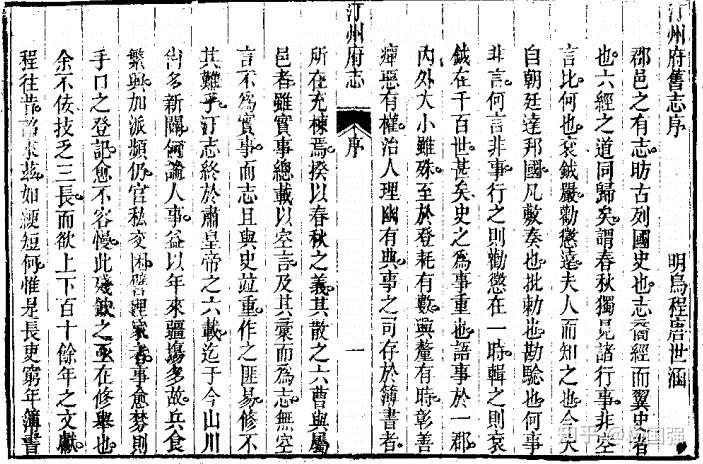 汀州府舊志序　明烏程唐世涵
郡邑之有志昉古列國史也志裔經而翼史者
也六經之道同歸矣謂春秋獨見諸行事非空
言比何也袞鉞嚴勸懲遠夫人而知之也今夫
自朝廷達邦國凡敷奏也批勅也勘驗也何事
非言何言非事行之則勸懲在一時輯之則袞
鉞在千百世甚矣史之爲事重也語事於一郡
內外大小雖殊至於登耗有數興釐有時彰善
癉惡有權治人理幽有典事之可存於簿書者
汀州府志　序　一
所在充棟焉揆以春秋之義其散之六曹與屬
邑者雖實事總載以空言及其彙而爲志無空
言不爲實事而志且與史竝重作之匪易修不
其難乎汀志終於肅皇帝之六載迄于今山川
尚多新闢何論人事益以年來疆場多故兵食
繁興加派頻仍官私交困譬理家者事愈棼則
手口之登記愈不容慢此殘缺之亟在修舉也
余不佞技乏三長而欲上下百十餘年之文獻
程往昔詔來茲如綆短何惟是長吏窮年簿書
知乎 @国强